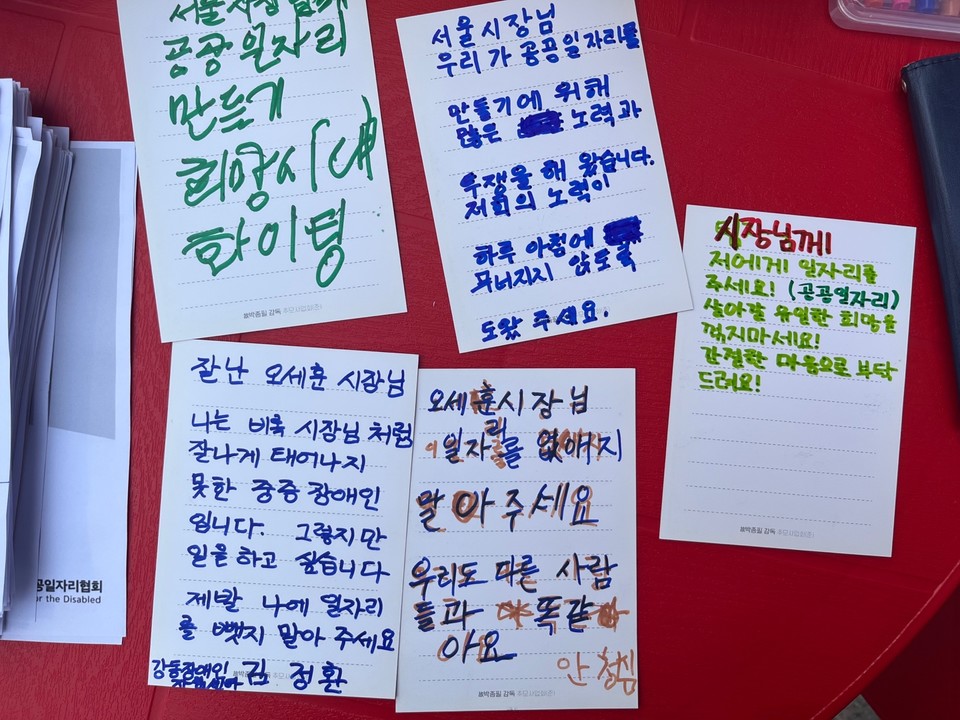 공공일자리
만들기
희망시대
화이팅
故박종필 감독 추모사업회(준)
서울시장님
우리가 공공일자리를
만들기에 위해
많은 노력과
투쟁을 해 왔습니다.
저희의 노력이
하루 아침에
무너지지 않도록
도와 주세요.
故박종필 감독 추모사업회(준)
시장님께!
저에게 일자리를
주세요! (공공일자리)
살아갈 유일한 희망을
꺾지마세요!
간절한 마음으로 부탁
드려요!
故박종필 감독 추모사업회(준)
잘난 오세훈 시장님
나는 비록 시장님 처럼
잘나게 태어나지
못한 중증 장애인
입니다. 그렇지만
일을 하고 싶습니다
제발 나에 일자리
를 뺏지 말아 주세요
강동장애인
김 정환
오세훈시장님
일자리를 없애지
말아주세요
우리도 다른 사람
들과 똑같
아요
故박종필 감독 추모사업회(준)
공일자리협회
or the Disabled